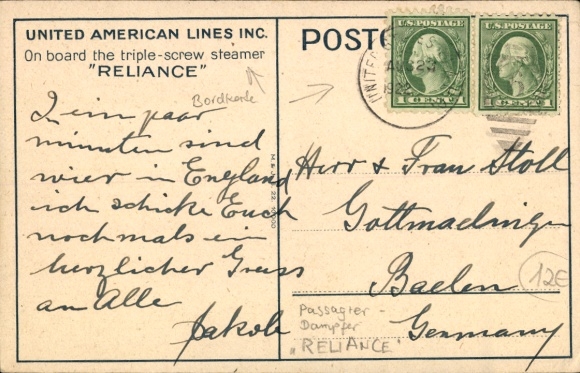 UNITED AMERICAN LINES INC.
On board the triple-screw steamer
"RELIANCE"
Bordkarte
In ein paar
minuten sind
wier in England
ich schicke Euch
nochmals ein
herzlicher Gruss
an Alle
Jakob
M. & Co. 22
POSTC
U.S. POSTAGE
1 CENT 1
U.S. POSTAGE
1 CENT 1
UNITED
AUG 23
192
Herr & Frau Stoll
Gottmadingen
Baden
Germany
12E
Passagier-
Dampfer
"RELIANCE"